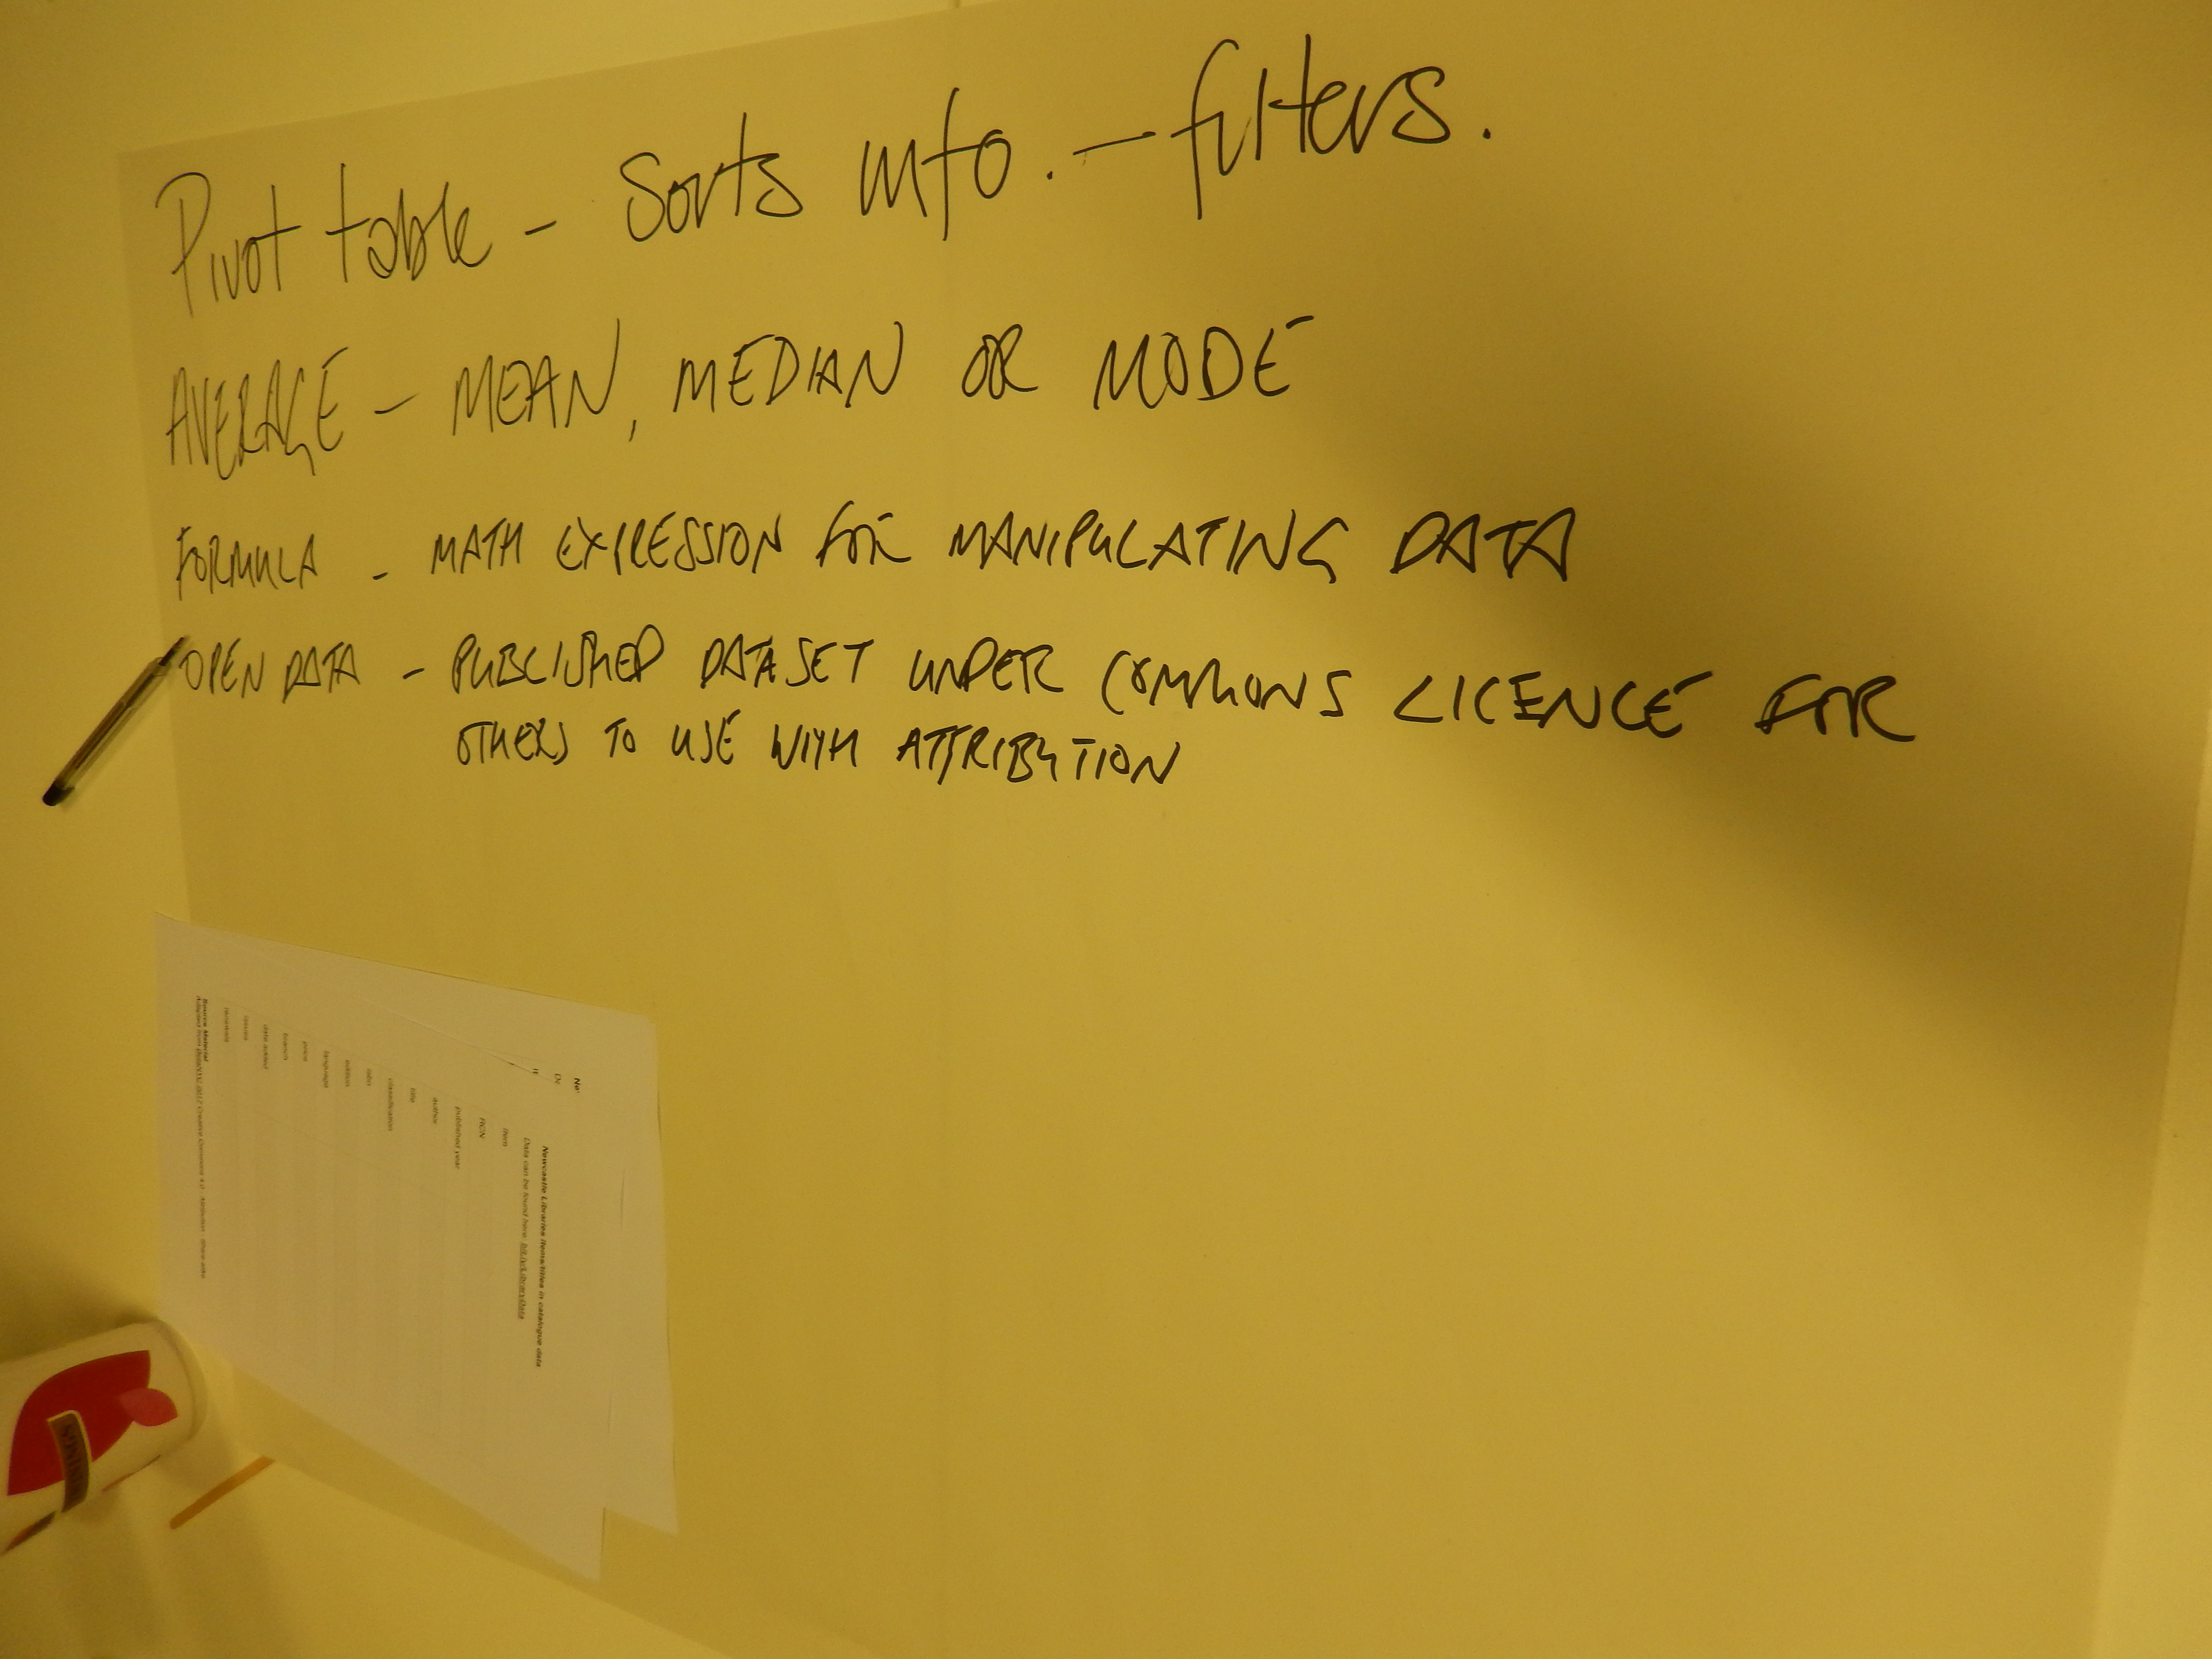 Pivot table - Sorts info. - filters.
AVERAGE - MEAN, MEDIAN OR MODE
FORMULA - MATH EXPRESSION FOR MANIPULATING DATA
OPEN DATA - PUBLISHED DATASET UNDER COMMONS LICENCE FOR
OTHERS TO USE WITH ATTRIBUTION
Newcastle Libraries items/titles in catalogue data
Data can be found here: bit.ly/LibraryData
item
RCN
published year
author
title
classification
isbn
edition
language
price
branch
date added
issues
renewals
Source Material
2017 Creative Commons 4.0 - Attribution - Share-alike
TWININGS